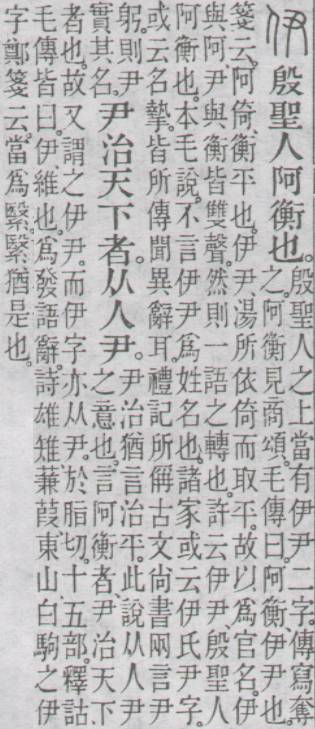 伊 殷聖人阿衡也。殷聖人之上當有伊尹二字。傳寫奪
之。阿衡見商頌。毛傳曰。阿衡、伊尹也。
箋云。阿、倚。衡、平也。伊尹、湯所依倚而取平。故以爲官名。伊
與阿、尹與衡皆雙聲。然則一語之轉也。許云伊尹殷聖人
阿衡也。本毛說。不言伊尹爲姓名也。諸家或云伊氏尹字。
或云名摯。皆所傳聞異辭耳。禮記所偁古文尚書兩言尹
躬。則尹
實其名。
尹治天下者。从人尹。
尹治猶言治平。此說从人尹
之意也。言阿衡者、尹治天下
者也。故又謂之伊尹。而伊字亦从尹。於脂切。十五部。釋詁
毛傳皆曰。伊、維也。爲發語辭。詩雄雉、蒹葭、東山、白駒之伊
字、鄭箋云。當爲繄。繄猶是也。